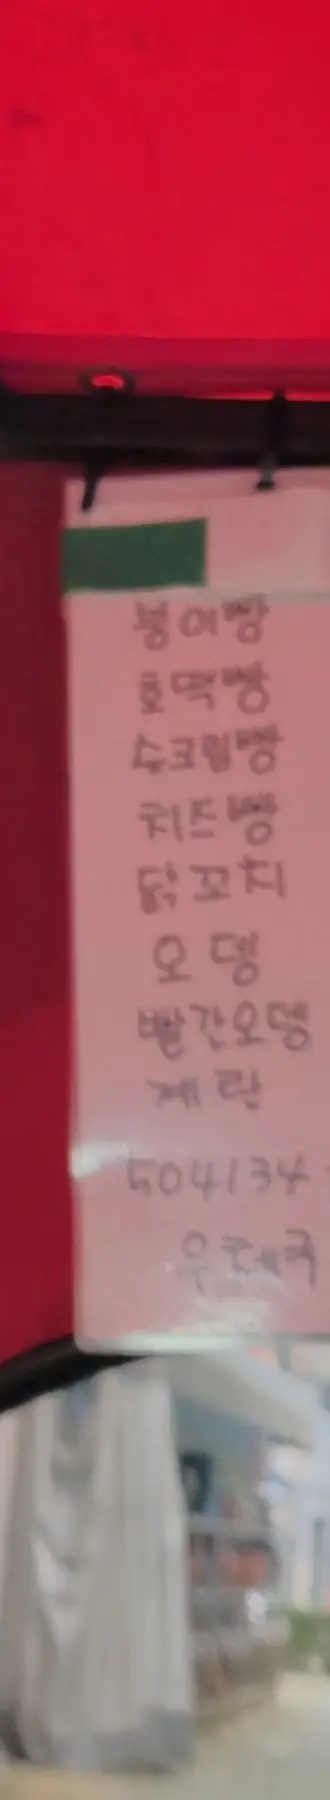 붕어빵
호떡빵
슈크림빵
치즈빵
닭꼬치
오뎅
빨간오뎅
계란
504134
우체국